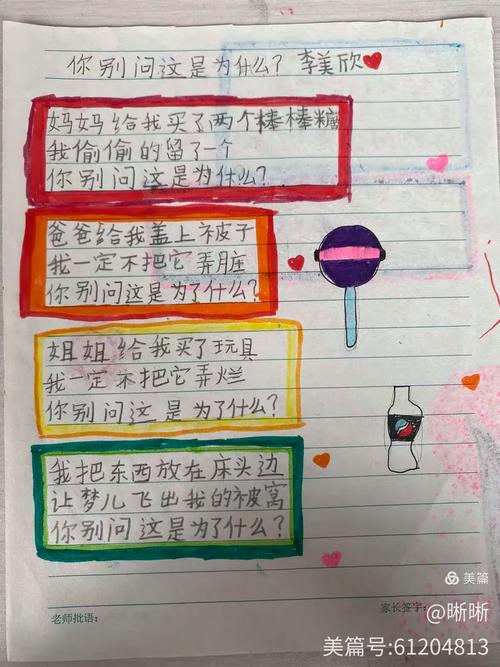 你别问这是为什么? 李美欣
妈妈给我买了两个棒棒糖
我偷偷的留了一个
你别问这是为什么?
爸爸给我盖上被子
我一定不把它弄脏
你别问这是为了什么?
姐姐给我买了玩具
我一定不把它弄烂
你别问这是为了什么?
我把东西放在床头边
让梦儿飞出我的被窝
你别问这是为了什么?
老师批语:
家长签字:
美篇
@晰晰
美篇号:61204813